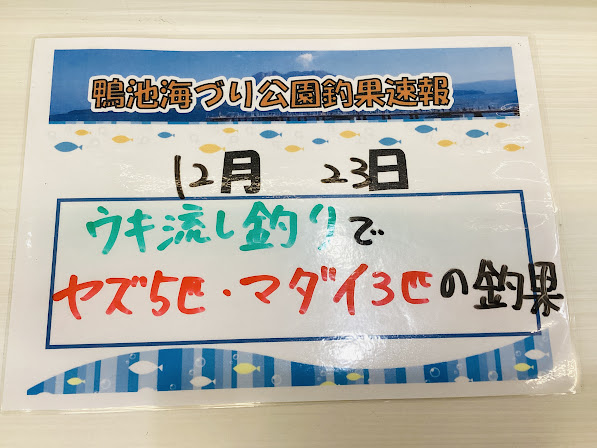 鴨池海づり公園釣果速報
12月 23日
ウキ流し釣りで
ヤズ5匹・マダイ3匹の釣果